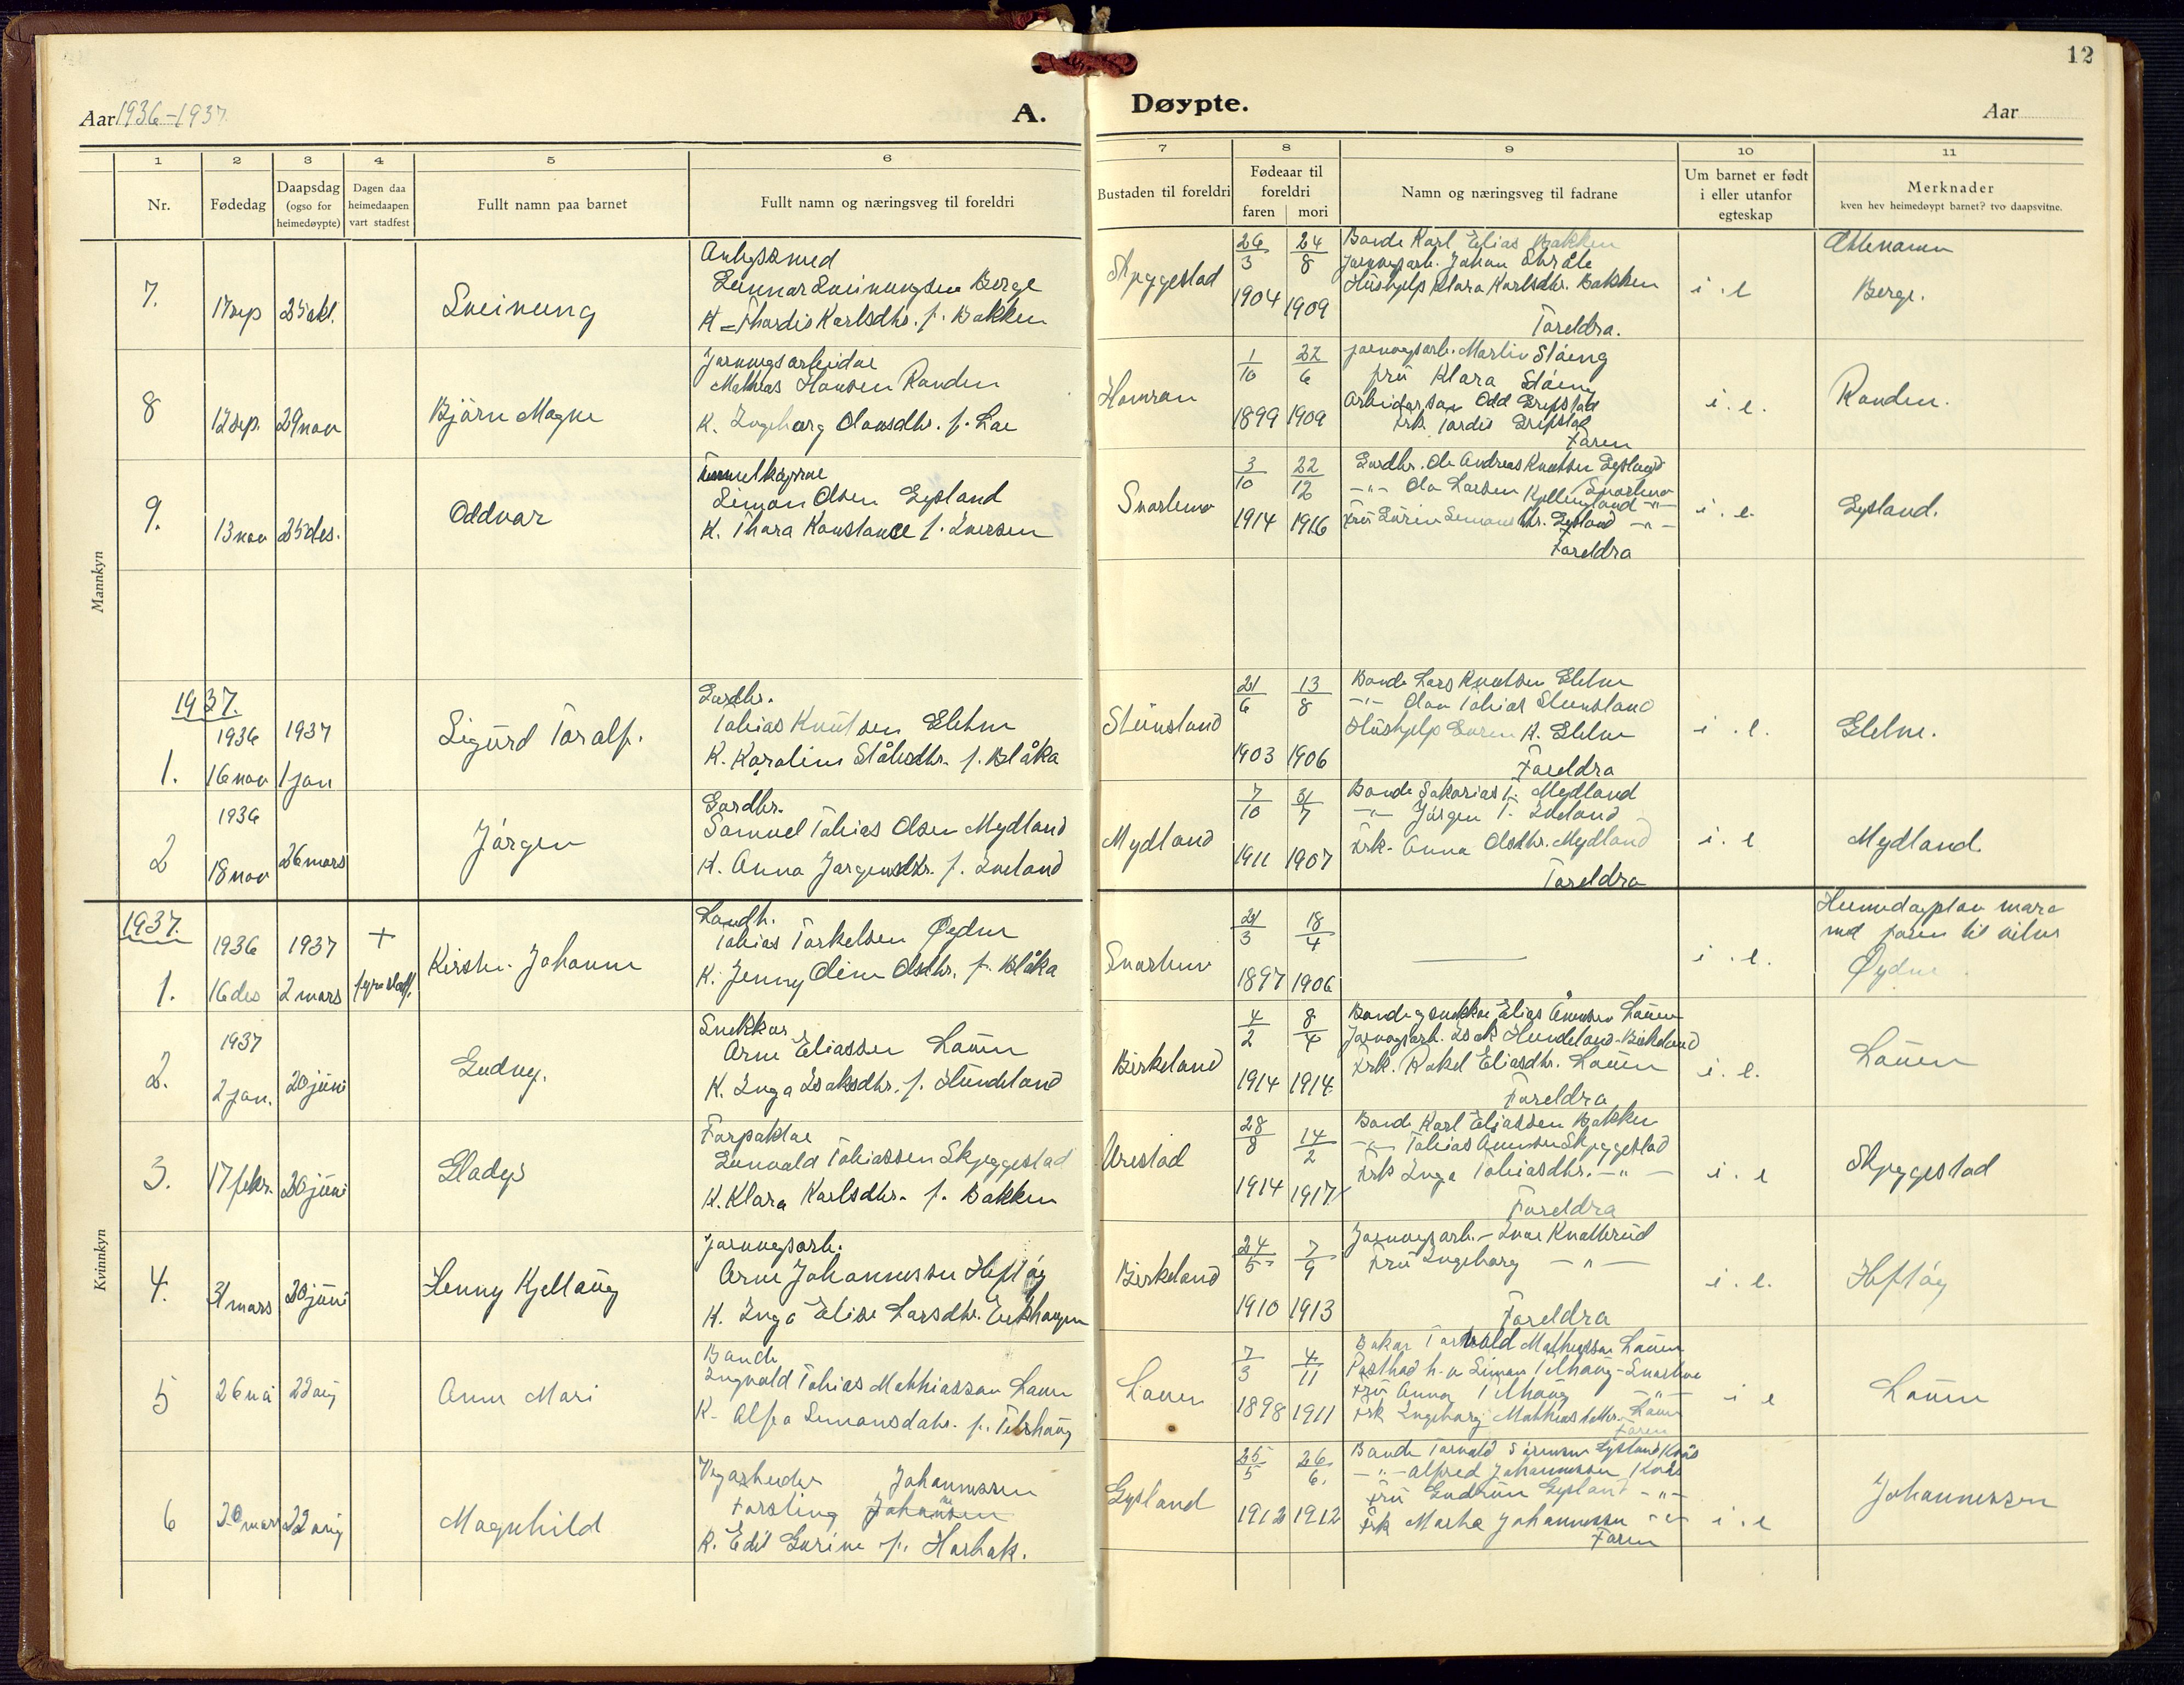 12
Aar 1936-1937.
A.
Døypte.
Aar
1 2 3 4 5 6 7 8 9 10 11
Nr.
Fødedag
Daapsdag
(ogso for
heimedøypte)
Dagen daa
heimedaapen
vart stadfest
Fullt namn paa barnet
Fullt namn og næringsveg til foreldri
Bustaden til foreldri
Fødeaar til
foreldri
faren mori
Namn og næringsveg til fadrane
Um barnet er født
i eller utanfor
egteskap
Merknader
kven hev heimedøypt barnet? tvo daapsvitne.
Mannkyn
7. 17 sep 25 okt. Sveinung
Gunnar Sveinungsen Berge
K. Thordis Karlsdtr. f. Bakken
Skjeggestad
26/3 1904
24/8 1909
Bonde Karl Elias Bakken
Jarnvegsarb. Johan
Hushjelp Klara Karlsdtr. Bakken
Foreldra.
i. e
Ættenamn
Berge.
8 12 sep. 29 nov Bjørn Magne
Jarnvegsarbeidar
Mathias Hansen Randen
K. Ingeborg Olavsdtr. f. Lae
Homran
1/10 1899
22/6 1909
jarnvegsarb. Martin Støeng
fru Klara Støeng
Arbeidar Odd Gripstad
Frk. Tordis Gripstad
Faren
i. e.
Randen.
9. 13 nov 25 des. Oddvar
Simon Olsen Eysland
K. Thora Konstance f. Iversen
Snartemo
3/10 1914
22/12 1916
Gardbr. Ole Andreas Knutsen Eysland
-"- Ola Larsen Kjellingland -"-
Fru -"-
Foreldra
i. e.
Eysland.
1937.
1936 1937
1. 16 nov 1 jan Sigurd Toralf.
Gardbr.
Tobias Knutsen Eletne
K. Karoline Ståledtr. f. Blåka
Stünsland
21/6 1903
13/8 1906
Bonde Lars Knutsen Eletne
-"- Olav Tobias Stunsland
Hushjelp K. Eletne
Foreldra
i. e.
Eletne.
1936
2 18 nov 26 mars Jørgen
Gardbr.
Samuel Tobias Olsen Mydland
K. Anna Jørgensdtr. f. Iveland
Mydland
7/10 1911
31/7 1907
Bonde Sakarias T. Mydland
-"- Jørgen T. Iveland
Frk. Anna Olsdtr. Mydland
Foreldra
i. e
Mydland.
Kvinnkyn
1937.
1936 1937 +
1. 16 des 2 mars Kirsten Johanne
Tobias Torkelsen Øydne
K. Jenny Oline Olsdtr. f. Blåka
Snartemo
21/3 1897
18/4 1906
i. e.
Heimedøypt av mora
med faren til vitne
Øydne
1937
2. 2 jan. 20 juni Gudny.
Snekkar
Arne Eliassen Lauen
K. Inga Isaksdtr. f. Hundeland
Birkeland
4/2 1914
8/4 1914
Bonde og snekkar Elias Ånensen Lauen
Jarnvegsarb. Isak Hundeland-Birkeland
Frk. Rakel Eliasdtr. Lauen
Foreldra
i. e.
Lauen
3. 17 febr. 20 juni Gladys
Forpaktar
Gunvald Tobiassen Skjeggestad
K. Klara Karlsdtr. f. Bakken
Urestad
28/8 1914
14/2 1917
Bonde Karl Eliassen Bakken
-"- Tobias Ånensen Skjeggestad
Frk Inga Tobiasdtr. -"-
Foreldra
i. e
Skjeggestad
4. 31 mars 20 juni Jenny Kjellaug
Jarnvegsarb.
Arne Johannessen Hefløy
K. Inga Elise Larsdtr.
Birkeland
24/5 1910
7/9 1913
Jarnvegsarb. - Ivar Knatterud
Fru Ingeborg -"-
Foreldra
i. e.
Hefløy
5 26 mai 22 aug Anne Mari
Bonde
Ingvald Tobias Mathiassen Lauen
K. Alfa Simonsdatr. f. Telhaug
Lauen
7/3 1898
4/11 1911
Bakar Torvald Mathiassen Lauen
Simon Telhaug-Snartemo
Fru Anna Telhaug -"-
Frk Ingeborg Mathiasdtr. Lauen
Faren
i e
Lauen
6 30 mars 22 aug Magnhild
Vegarbeider Johannessen
Torsling Johansen
K. Edit Gurine f. Harbak.
Gysland
25/5 1912
26/6. 1912
Bonde Torvald Sørensen Gysland Kvås
-"- Alfred Johannessen Kvås
Fru Gudrun Gysland -"-
Frk Martha Johannessen -"-
Faren
i. e
Johannessen